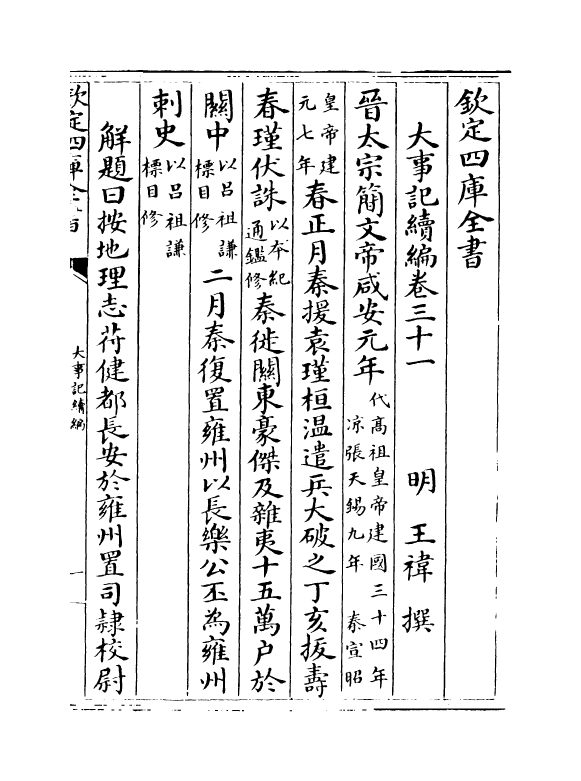 欽定四庫全書
大事記續編卷三十一 明 王禕 撰
晉太宗簡文帝咸安元年代髙祖皇帝建國三十四年涼張天錫九年 秦宣昭
皇帝建元七年春正月秦援袁瑾桓温遣兵大破之丁亥拔壽
春瑾伏誅以夲紀通鑑修秦徙關東豪傑及雜夷十五萬户於
關中以吕祖謙標目修二月秦復置雍州以長樂公丕為雍州
刺史以吕祖謙標目修
解題曰按地理志苻健都長安於雍州置司隷校尉
欽定四庫全書
大事記續編
一